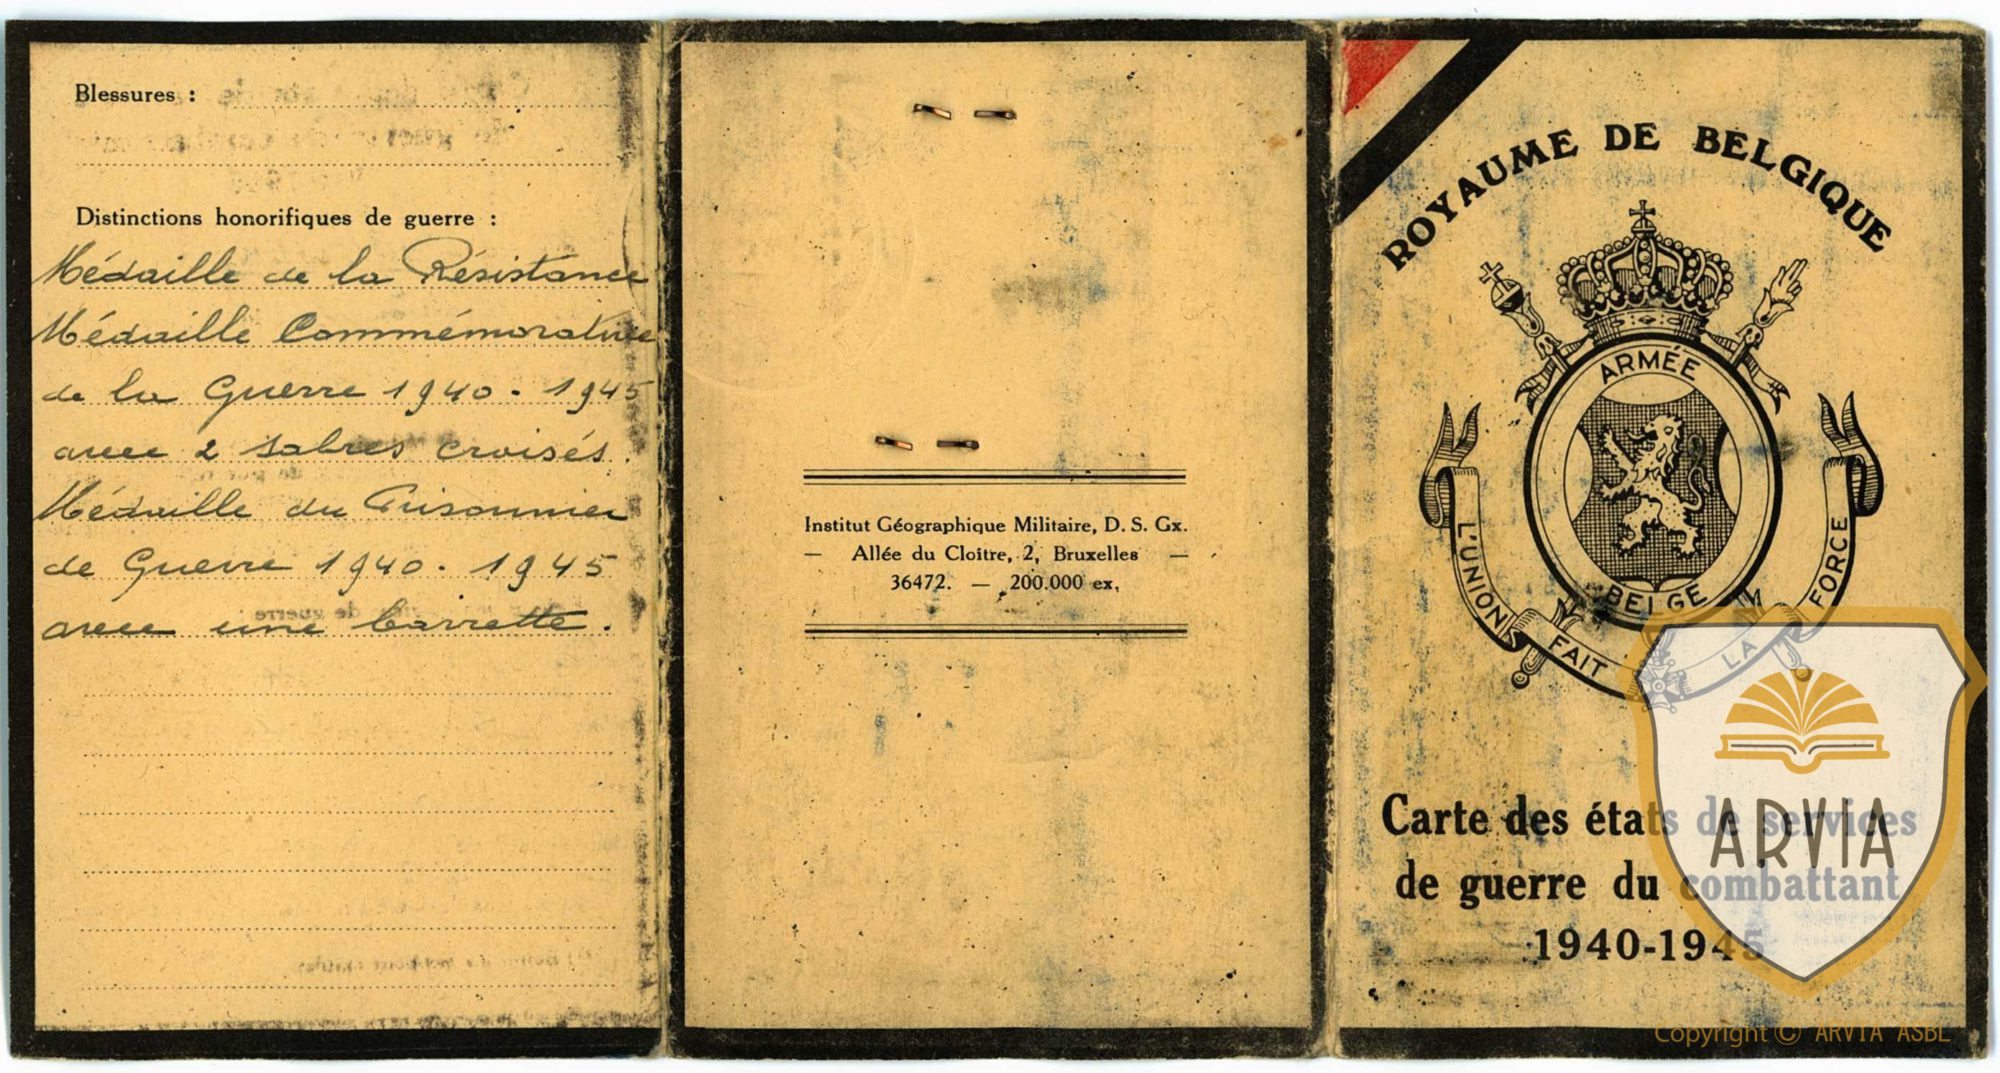 Blessures :
Distinctions honorifiques de guerre :
Médaille de la Résistance
Médaille Commémorative
de la Guerre 1940 - 1945
avec 2 sabres croisés.
Médaille du Prisonnier
de Guerre 1940 - 1945
avec une barrette.
Institut Géographique Militaire, D. S. Gx.
— Allée du Cloître, 2, Bruxelles —
36472. — 200.000 ex.
ROYAUME DE BELGIQUE
ARMÉE
BELGE
L'UNION FAIT LA FORCE
Carte des états de services
de guerre du combattant
1940-1945
ARVIA
Copyright © ARVIA ASBL